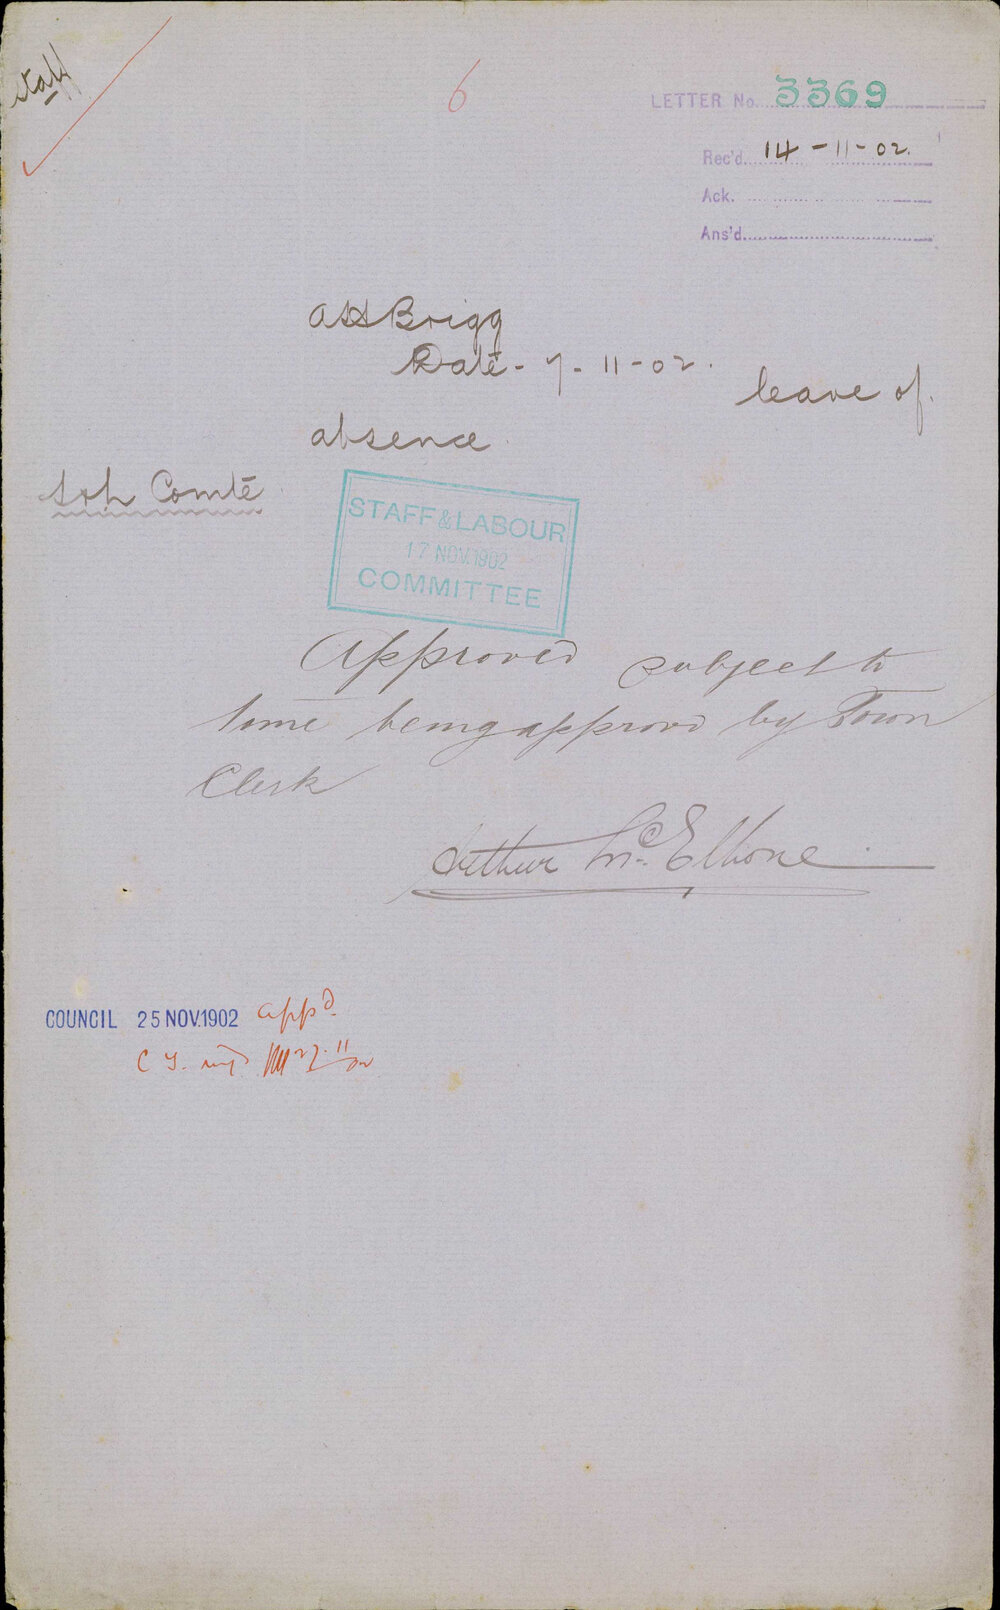 Staff
6
LETTER No. 3369
Rec'd. 14-11-02.
Ack.
Ans'd.
A H Brigg
Date - 7-11-02.
leave of
absence
S & L Comte
STAFF & LABOUR
17 NOV. 1902
COMMITTEE
Approved subject to
time being approved by Town
Clerk
Arthur McElhone
COUNCIL 25 NOV. 1902 appd.